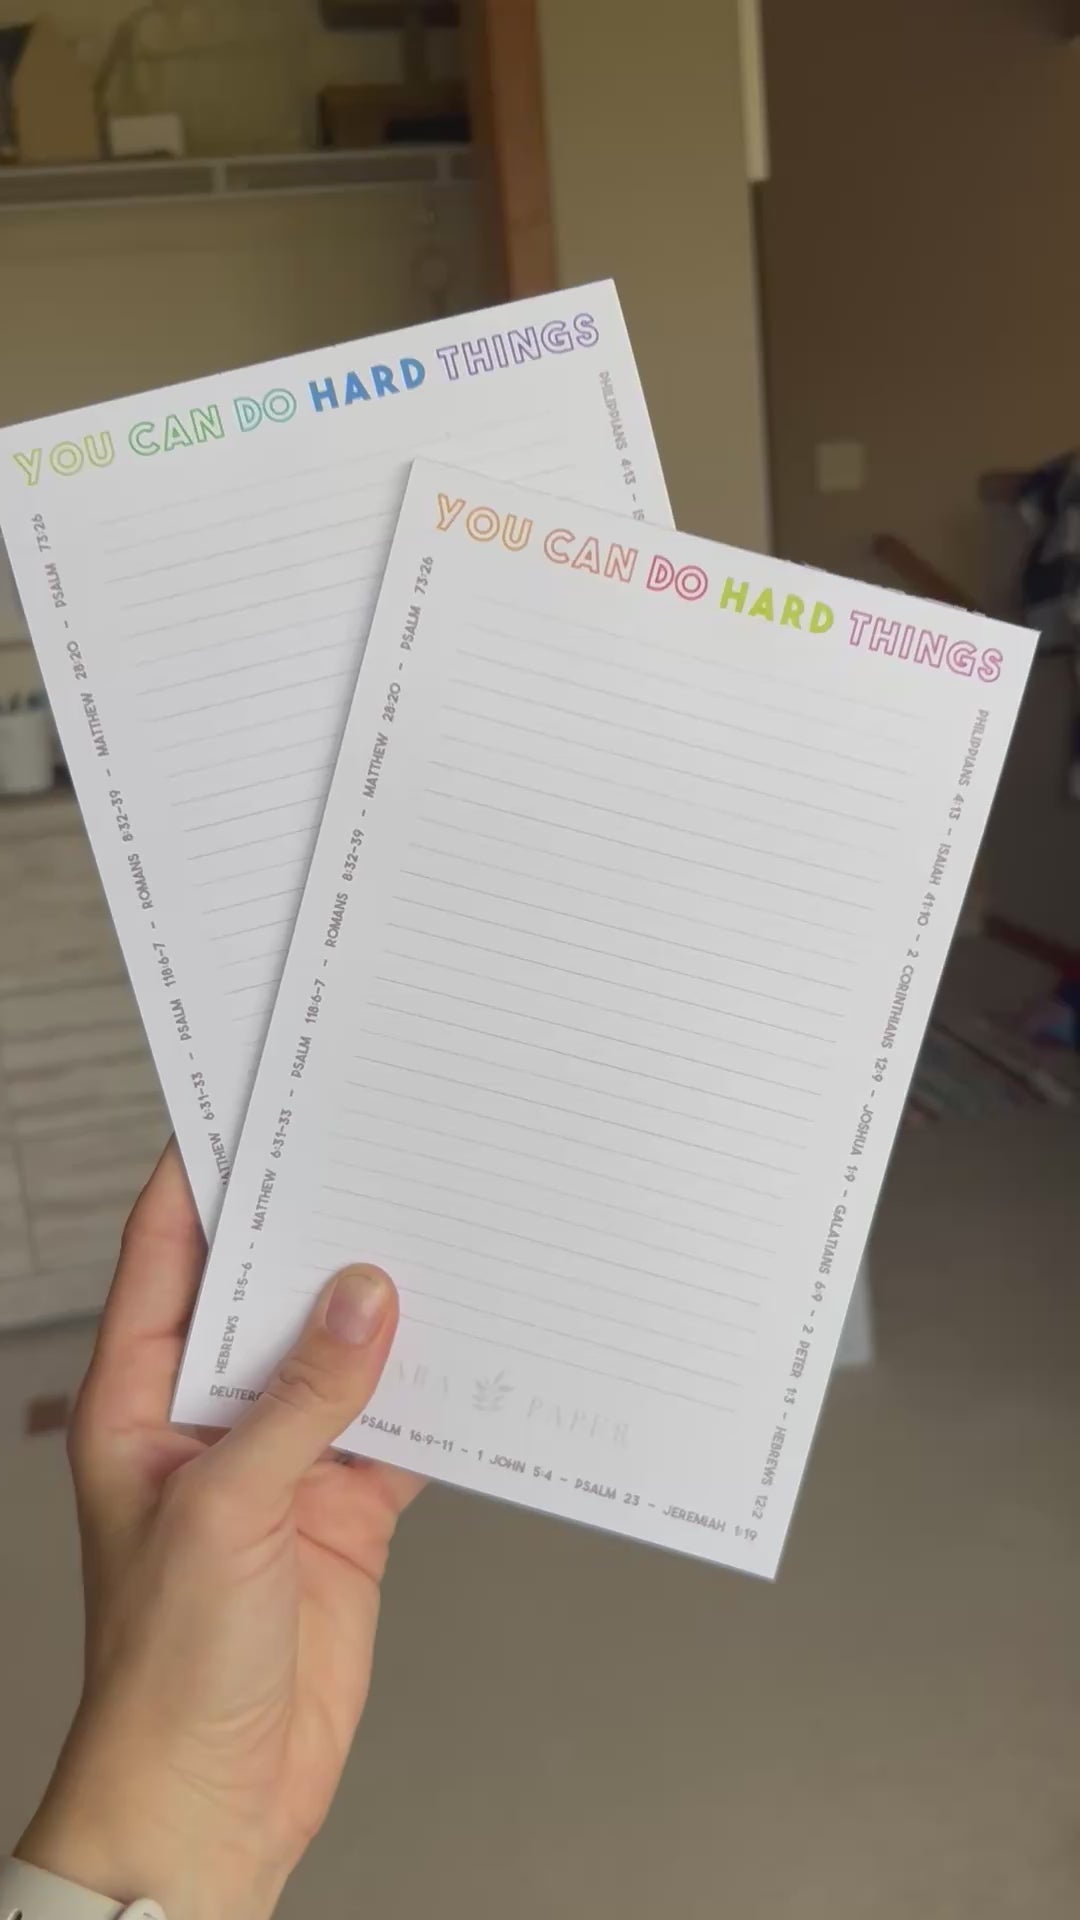 YOU CAN DO HARD THINGS
PHILIPPIANS 4:13 -
MATTHEW 6:31-33 - PSALM 118:6-7 - ROMANS 8:32-39 - MATTHEW 28:20 - PSALM 73:26
YOU CAN DO HARD THINGS
HEBREWS 13:5-6 - MATTHEW 6:31-33 - PSALM 118:6-7 - ROMANS 8:32-39 - MATTHEW 28:20 - PSALM 73:26
PHILIPPIANS 4:13 - ISAIAH 41:10 - 2 CORINTHIANS 12:9 - JOSHUA 1:9 - GALATIANS 6:9 - 2 PETER 1:3 - HEBREWS 12:2
PAPER
PSALM 16:9-11 - 1 JOHN 5:4 - PSALM 23 - JEREMIAH 1:19